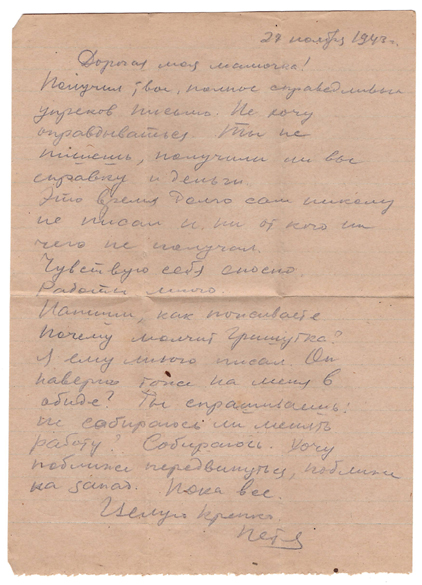 ноября 194 г.
Дорогая моя мамочка!
Получил твое, полное справедливых
упреков письмо. Не хочу
оправдываться. Ты не
пишешь, получили ли вы
справку и деньги.
Это время долго сам никому
не писал и ни от кого ни
чего не получал.
Чувствую себя сносно.
Работы много.
Напиши, как поживаете
Почему молчит Гришутка?
Я ему много писал. Он
наверно тоже на меня в
обиде? Ты спрашиваешь:
не собираюсь ли менять
работу? Собираюсь. Хочу
поближе передвинуться, поближе
на запад. Пока все.
Целую крепко
Петя